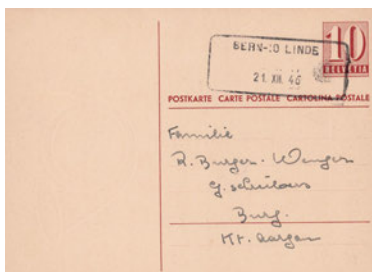 10
HELVETIA
BERN-10 LINDE
21. XII. 46
POSTKARTE CARTE POSTALE CARTOLINA POSTALE
Familie
R. Burger-Wenger
Burg.
Kt. Aargau